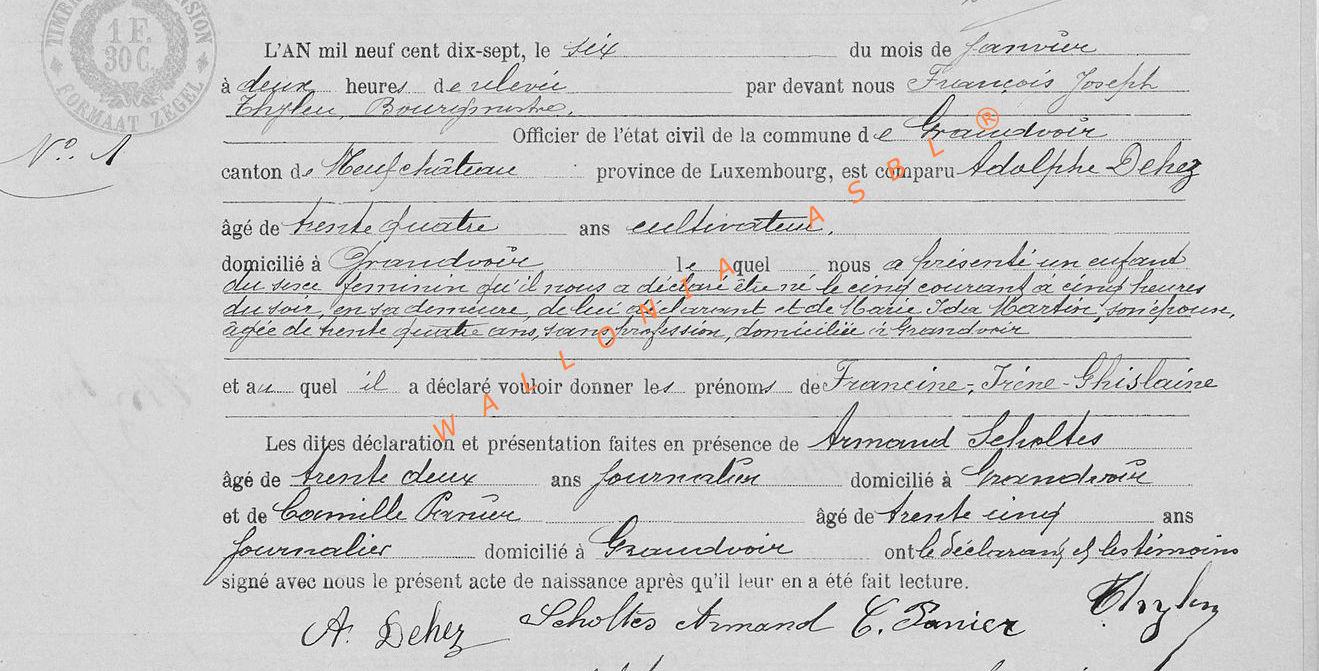 TIMBRE
1 F.
30 C.
FORMAAT ZEGEL
L'AN mil neuf cent dix-sept, le six du mois de Janvier
à deux heures de relevée par devant nous François Joseph
Bourgmestre,
Officier de l'état civil de la commune de Grandvoir
No. 1
canton de Neufchâteau province de Luxembourg, est comparu Adolphe Dehez
âgé de trente quatre ans cultivateur,
domicilié à Grandvoir le quel nous a présenté un enfant
du sexe féminin qu'il nous a déclaré être né le cinq courant à cinq heures
du soir, en sa demeure, de lui déclarant et de Marie Ida Martin, son épouse,
âgée de trente quatre ans, sans profession, domiciliée à Grandvoir
et au quel il a déclaré vouloir donner les prénoms de Francine-Irène-Ghislaine
Les dites déclaration et présentation faites en présence de Armand Scholtes
âgé de trente deux ans journalier domicilié à Grandvoir
et de Camille Panier âgé de trente cinq ans
journalier domicilié à Grandvoir ont le déclarant et les témoins
signé avec nous le présent acte de naissance après qu'il leur en a été fait lecture.
A. Dehez Scholtes Armand C. Panier
WALLONIA ASBL ®